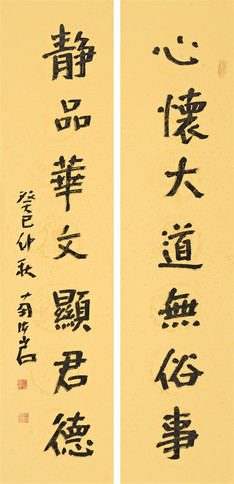 心懷大道無俗事
靜品華文顯君德
癸巳仲秋